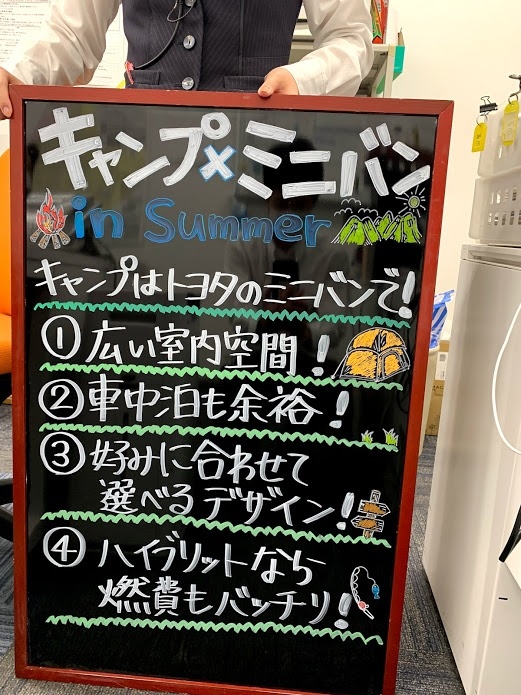 キャンプ×ミニバン
in Summer
キャンプはトヨタのミニバンで!
①広い室内空間!
②車中泊も余裕!
③好みに合わせて
選べるデザイン!
④ハイブリットなら
燃費もバッチリ!